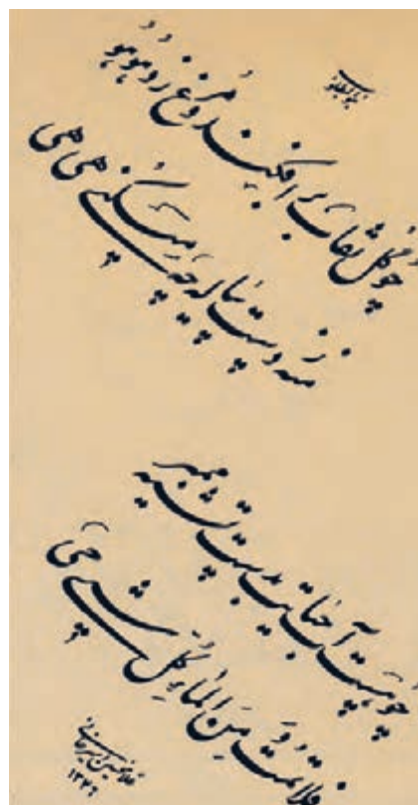 هو العلی
چو گل نقاب برافکند و مرغ زد هوهو
منه ز دست پیاله چه می‌کنی هی هی
چو هست آب حیاتت به دست تشنه ممیر
فلا تمت و من الماء کل شیء حی
غلامحسین امیرخانی